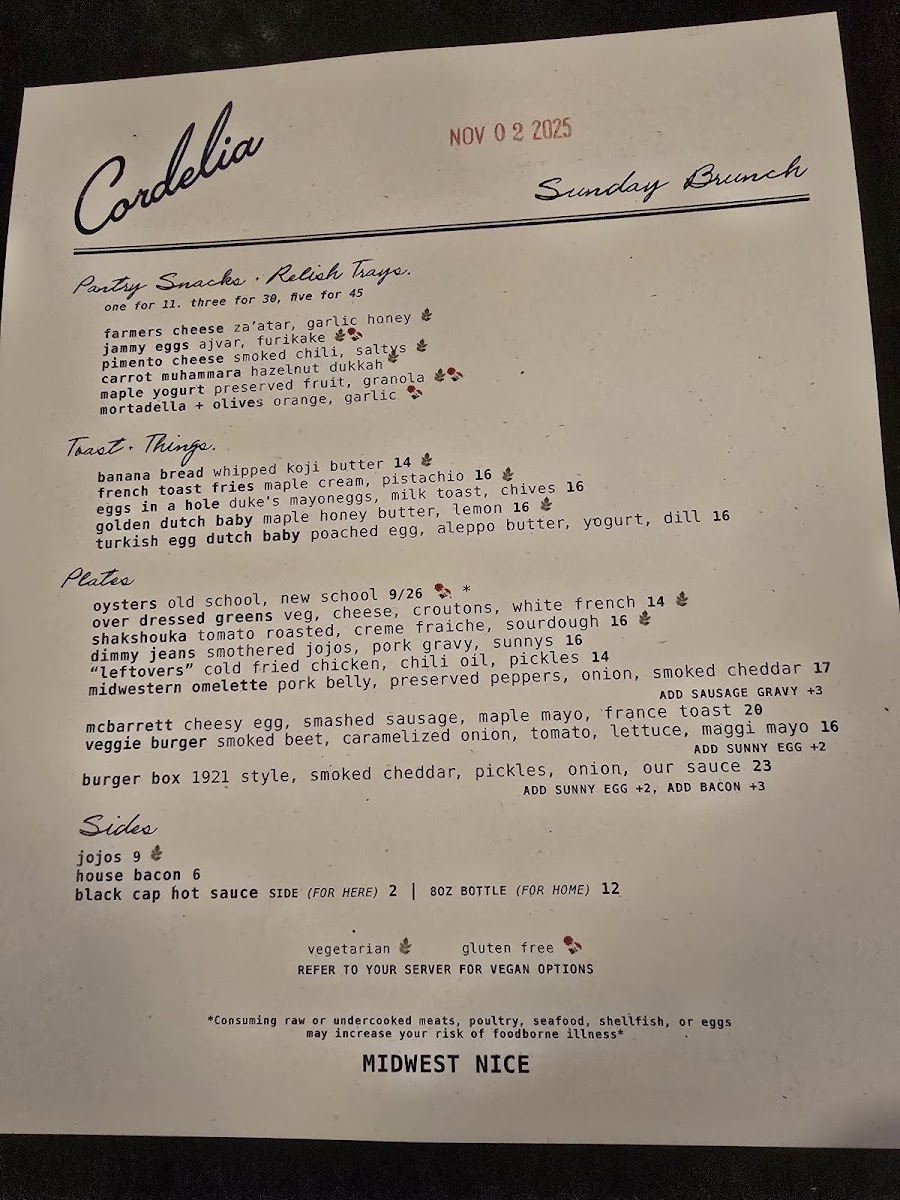 Cordelia
NOV 02 2025
Sunday Brunch
Pantry Snacks · Relish Trays.
one for 11. three for 30, five for 45
farmers cheese za'atar, garlic honey
jammy eggs ajvar, furikake
pimento cheese smoked chili, saltys
carrot muhammara hazelnut dukkah
maple yogurt preserved fruit, granola
mortadella + olives orange, garlic
Toast · Things.
banana bread whipped koji butter 14
french toast fries maple cream, pistachio 16
eggs in a hole duke's mayoneggs, milk toast, chives 16
golden dutch baby maple honey butter, lemon 16
turkish egg dutch baby poached egg, aleppo butter, yogurt, dill 16
Plates
oysters old school, new school 9/26 *
over dressed greens veg, cheese, croutons, white french 14
shakshouka tomato roasted, creme fraiche, sourdough 16
dimmy jeans smothered jojos, pork gravy, sunnys 16
“leftovers” cold fried chicken, chili oil, pickles 14
midwestern omelette pork belly, preserved peppers, onion, smoked cheddar 17
ADD SAUSAGE GRAVY +3
mcbarrett cheesy egg, smashed sausage, maple mayo, france toast 20
veggie burger smoked beet, caramelized onion, tomato, lettuce, maggi mayo 16
ADD SUNNY EGG +2
burger box 1921 style, smoked cheddar, pickles, onion, our sauce 23
ADD SUNNY EGG +2, ADD BACON +3
Sides
jojos 9
house bacon 6
black cap hot sauce SIDE (FOR HERE) 2 | 8OZ BOTTLE (FOR HOME) 12
vegetarian gluten free
REFER TO YOUR SERVER FOR VEGAN OPTIONS
*Consuming raw or undercooked meats, poultry, seafood, shellfish, or eggs
may increase your risk of foodborne illness*
MIDWEST NICE